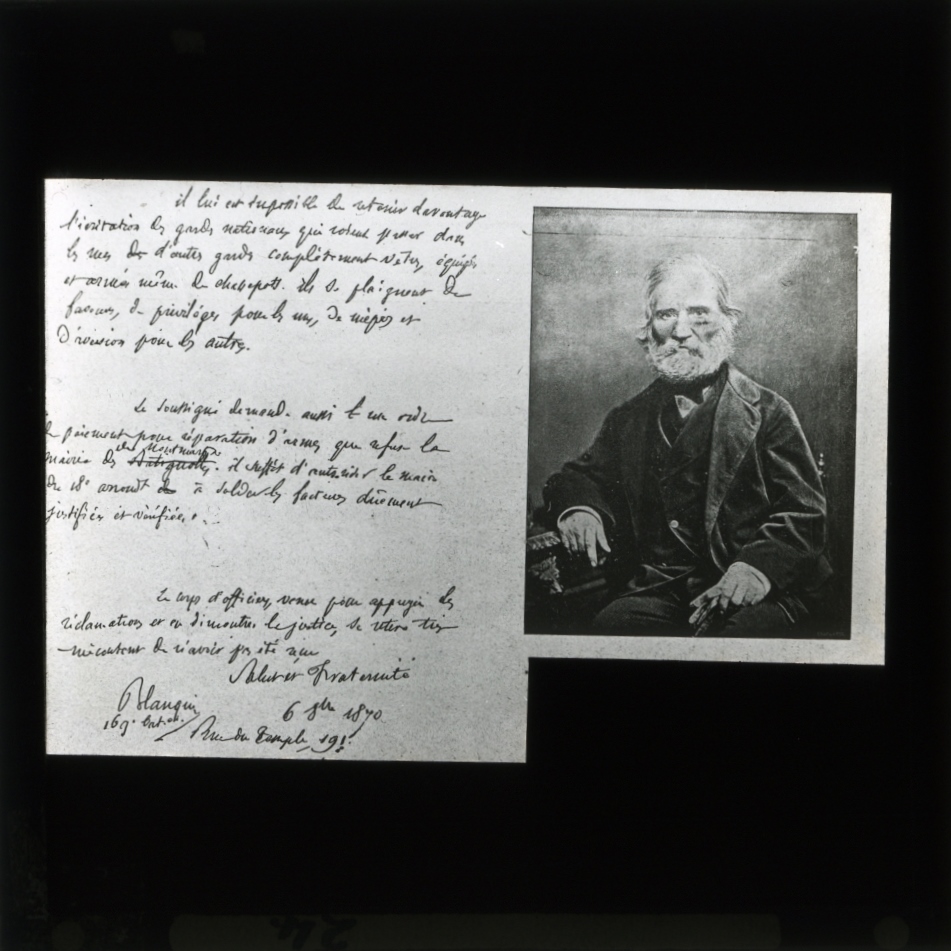 il lui est impossible de retenir davantage
l'irritation des gardes nationaux qui voient passer dans
les rues de d'autres gardes complètement vêtus, équipés
et armés même de chassepots. ils se plaignent de
faveurs, de privilèges pour les uns, de mépris et
d'aversion pour les autres.
Le soussigné demande aussi un ordre
de paiement pour réparation d'armes que refuse la
mairie des Batignolles. il suffit d'autoriser le maire
de Montmartre
du 18e arrondt de à solder les factures dûment
justifiées et vérifiées.
Le corps d'officiers, venu pour appuyer les
réclamations et en démontrer la justice, se retire très
mécontent de n'avoir pas été reçu
Salut et Fraternité
Blanqui
6 8bre 1870
169e bat.on
Rue du Temple, 191